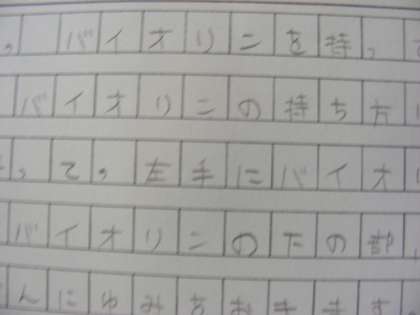 、 バイオリンを持っ
バイオリンの持ち方
って。左手にバイオ
バイオリンのたの部
んにゆみを